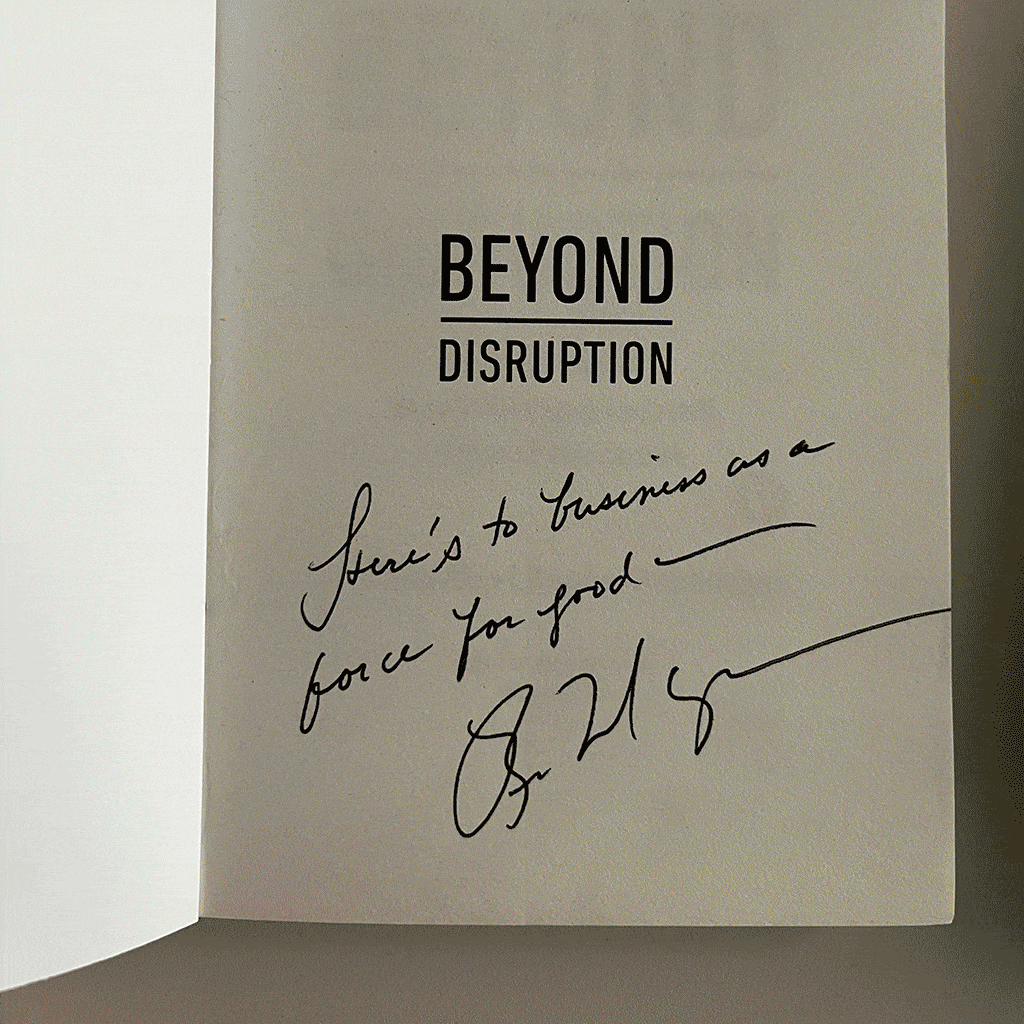 BEYOND
DISRUPTION
Here's to business as a
force for good —